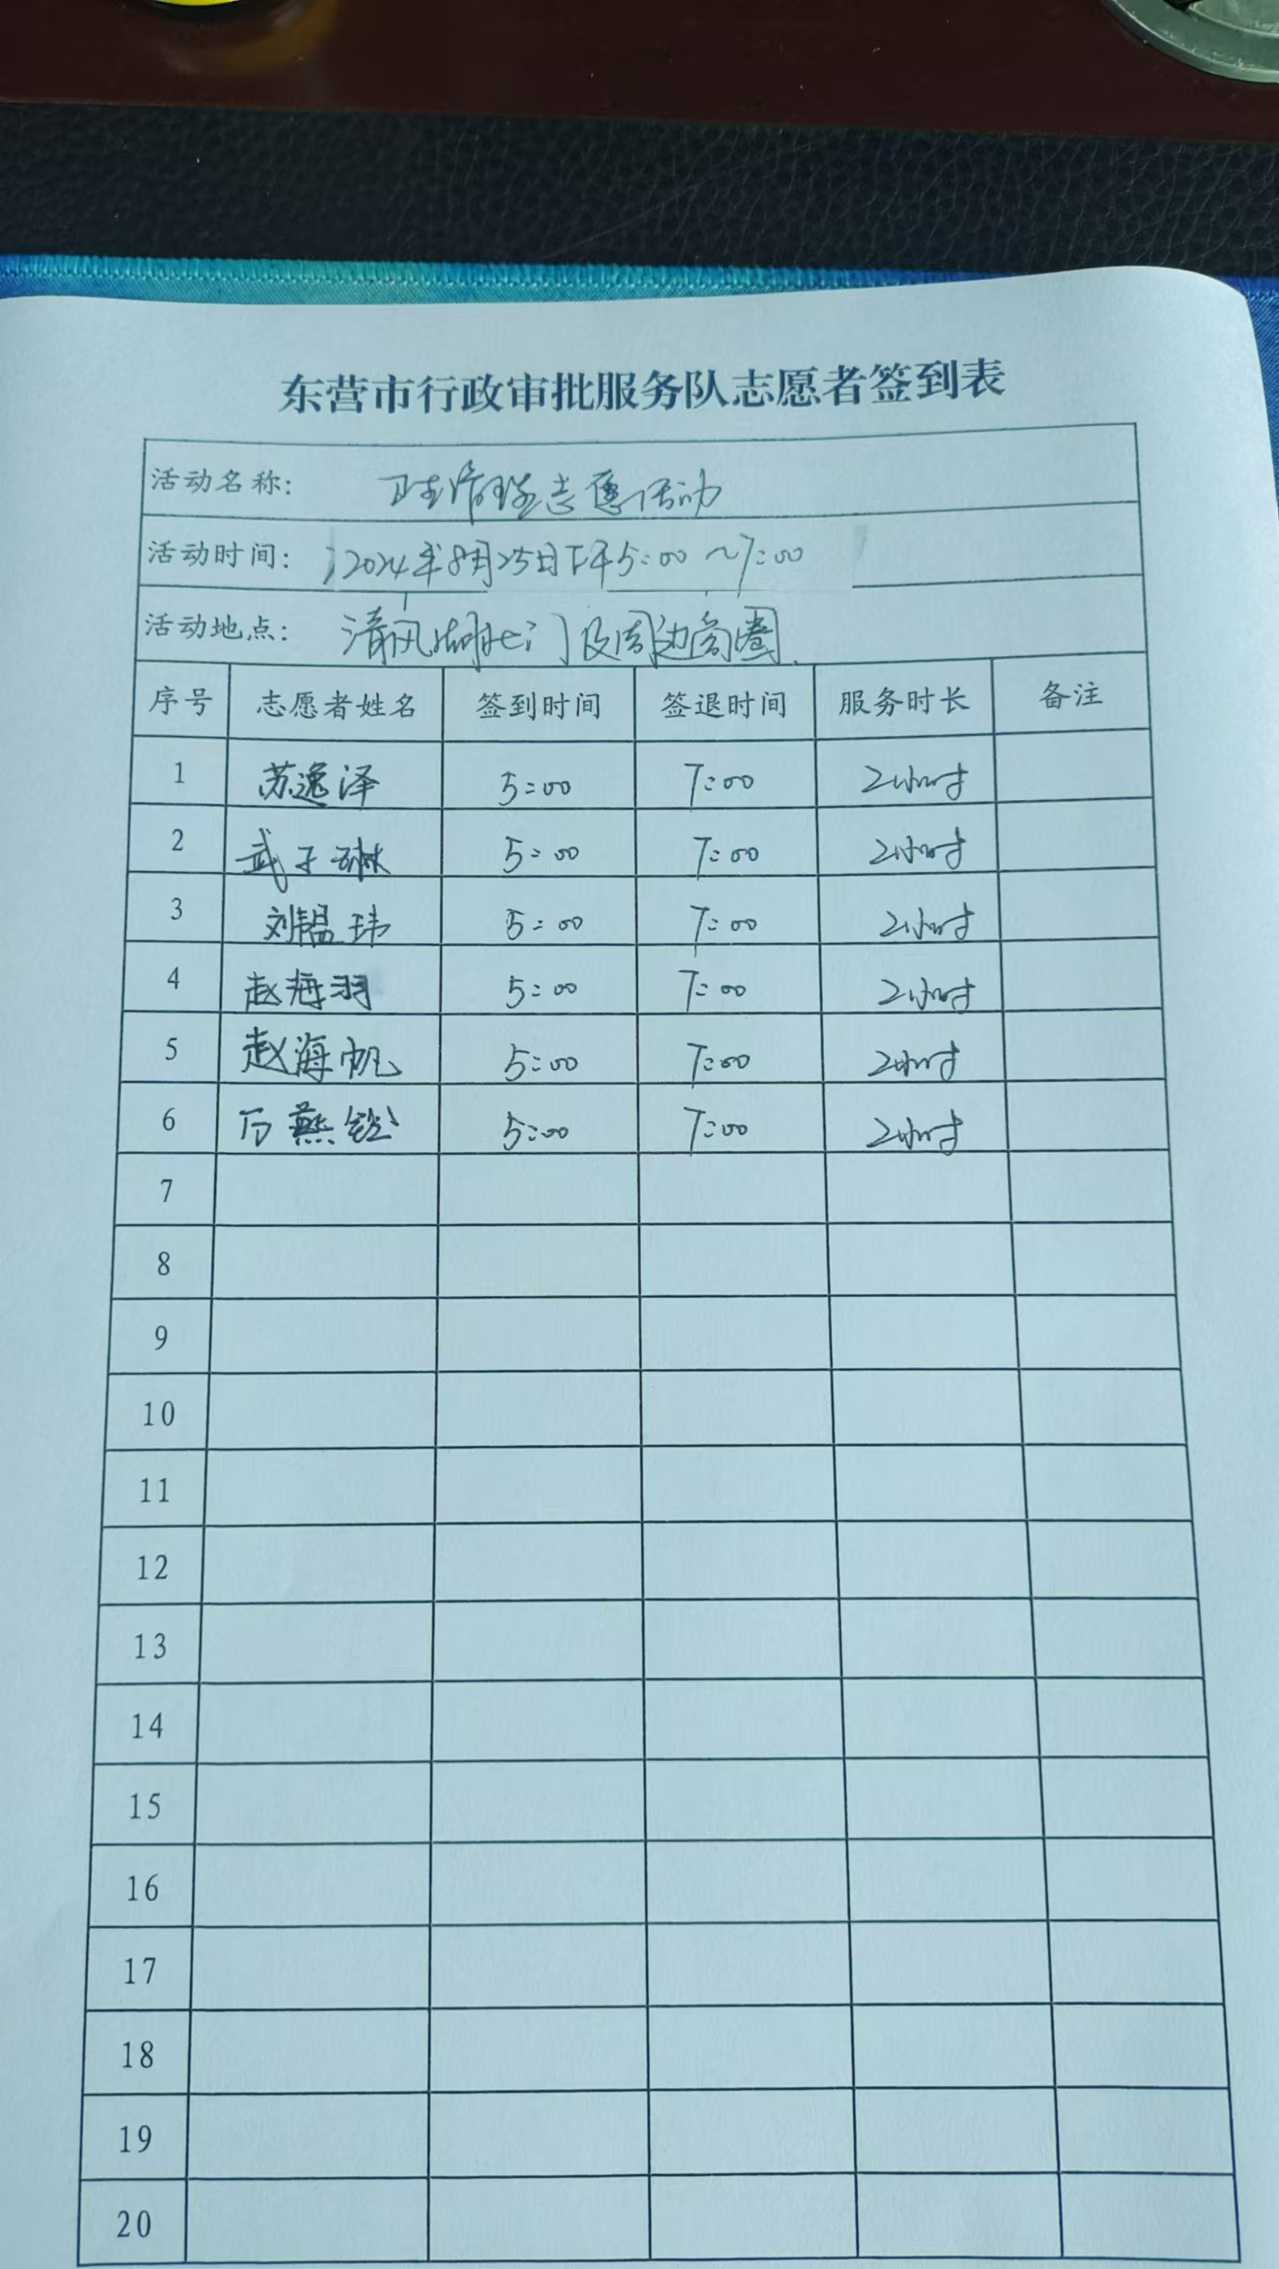 东营市行政审批服务队志愿者签到表
活动名称: 卫生清理志愿活动
活动时间: 2024年8月25日下午5:00～7:00
活动地点: 清风湖北门及周边商圈
序号 志愿者姓名 签到时间 签退时间 服务时长 备注
1 苏逸泽 5:00 7:00 2小时
2 武子琳 5:00 7:00 2小时
3 刘韫玮 5:00 7:00 2小时
4 赵海羽 5:00 7:00 2小时
5 赵海帆 5:00 7:00 2小时
6 燕 5:00 7:00 2小时
7
8
9
10
11
12
13
14
15
16
17
18
19
20